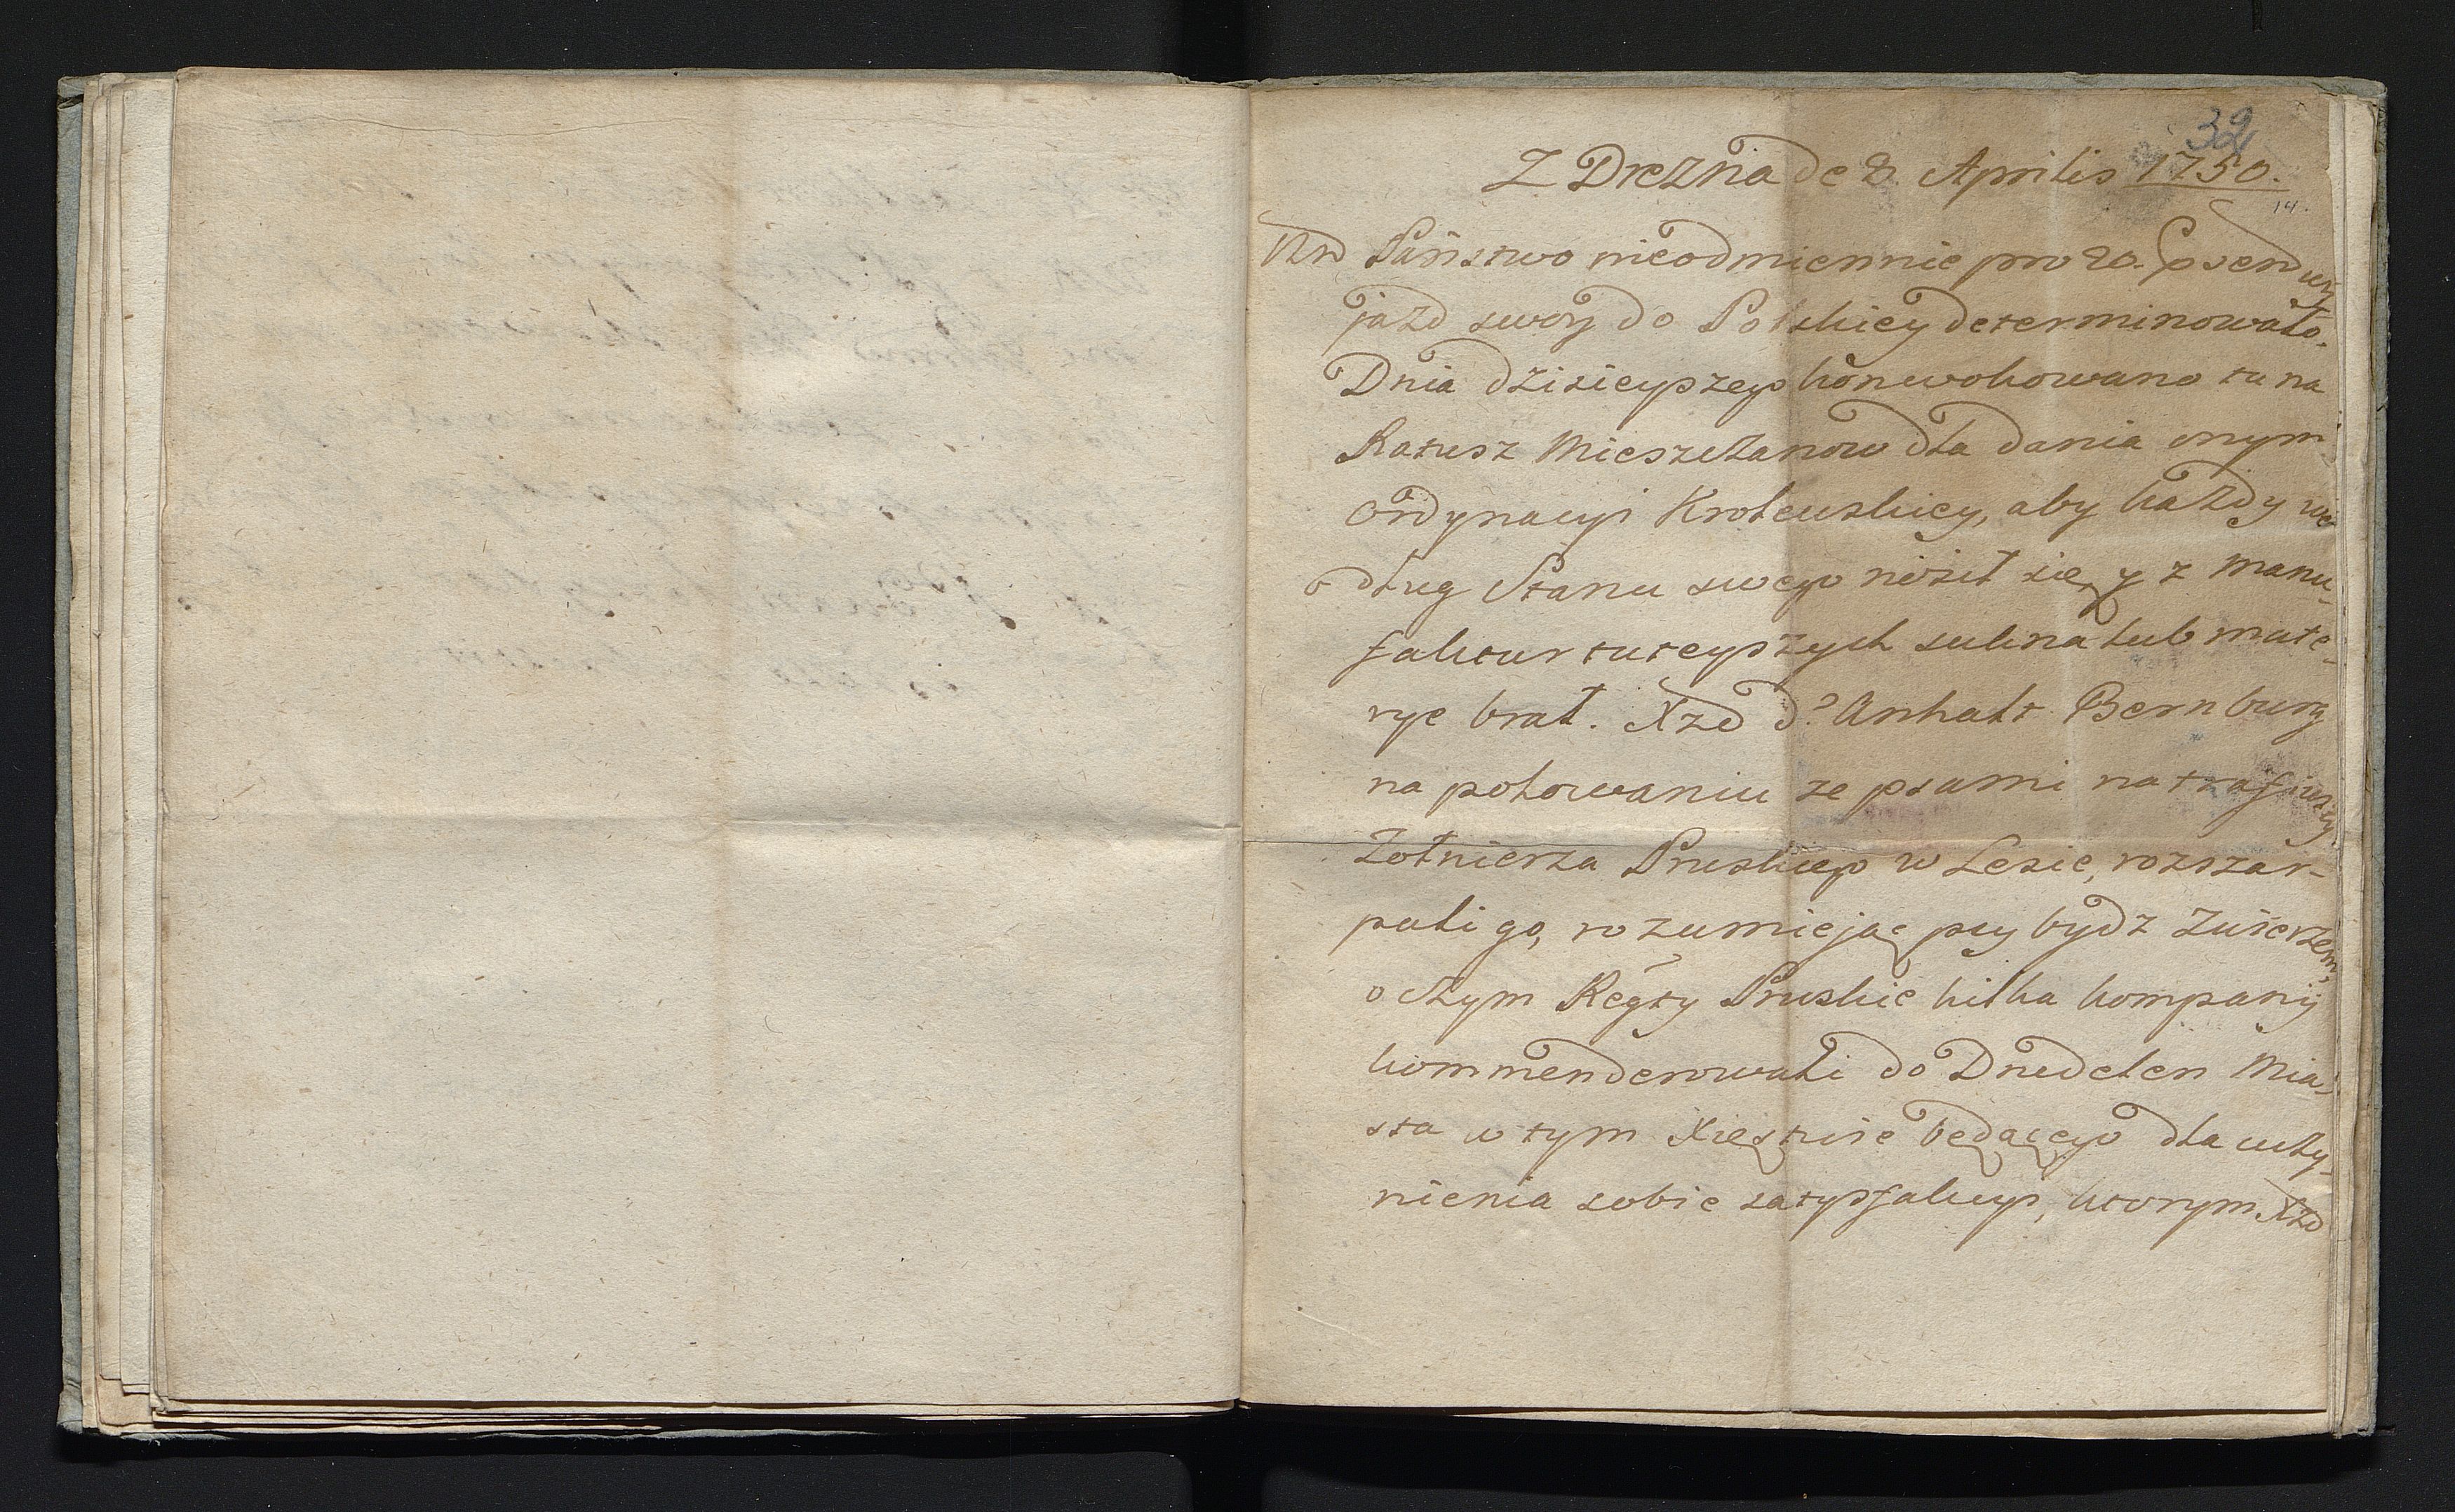 32
Z Drezna de 8. Aprilis 1750.
14.
Nrd Państwo nieodmiennie pro 20. Psend wy
jazd swoy do Polskiey determinowało.
Dnia dzisieyszego konwokowano tu na
Ratusz Mieszczanow dla dania onym
Ordynacyi Krolewskiey, aby każdy we
dług Stanu swego nosił się y z manu-
faktur tuteyszych sukna lub mate-
rye brał. Xżę d'Anhalt Bernburg
na polowaniu ze psami natrafiwszy
Żołnierza Pruskiego w Lesie, rozszar-
pali go, rozumiejąc psy bydź Zwierzem,
o czym Regty Pruskie kilka kompanij
kommenderowali do Dredelen Mia-
sta w tym Xięstwie będącego dla uczy-
nienia sobie satysfakcyi, ktorym Xżę